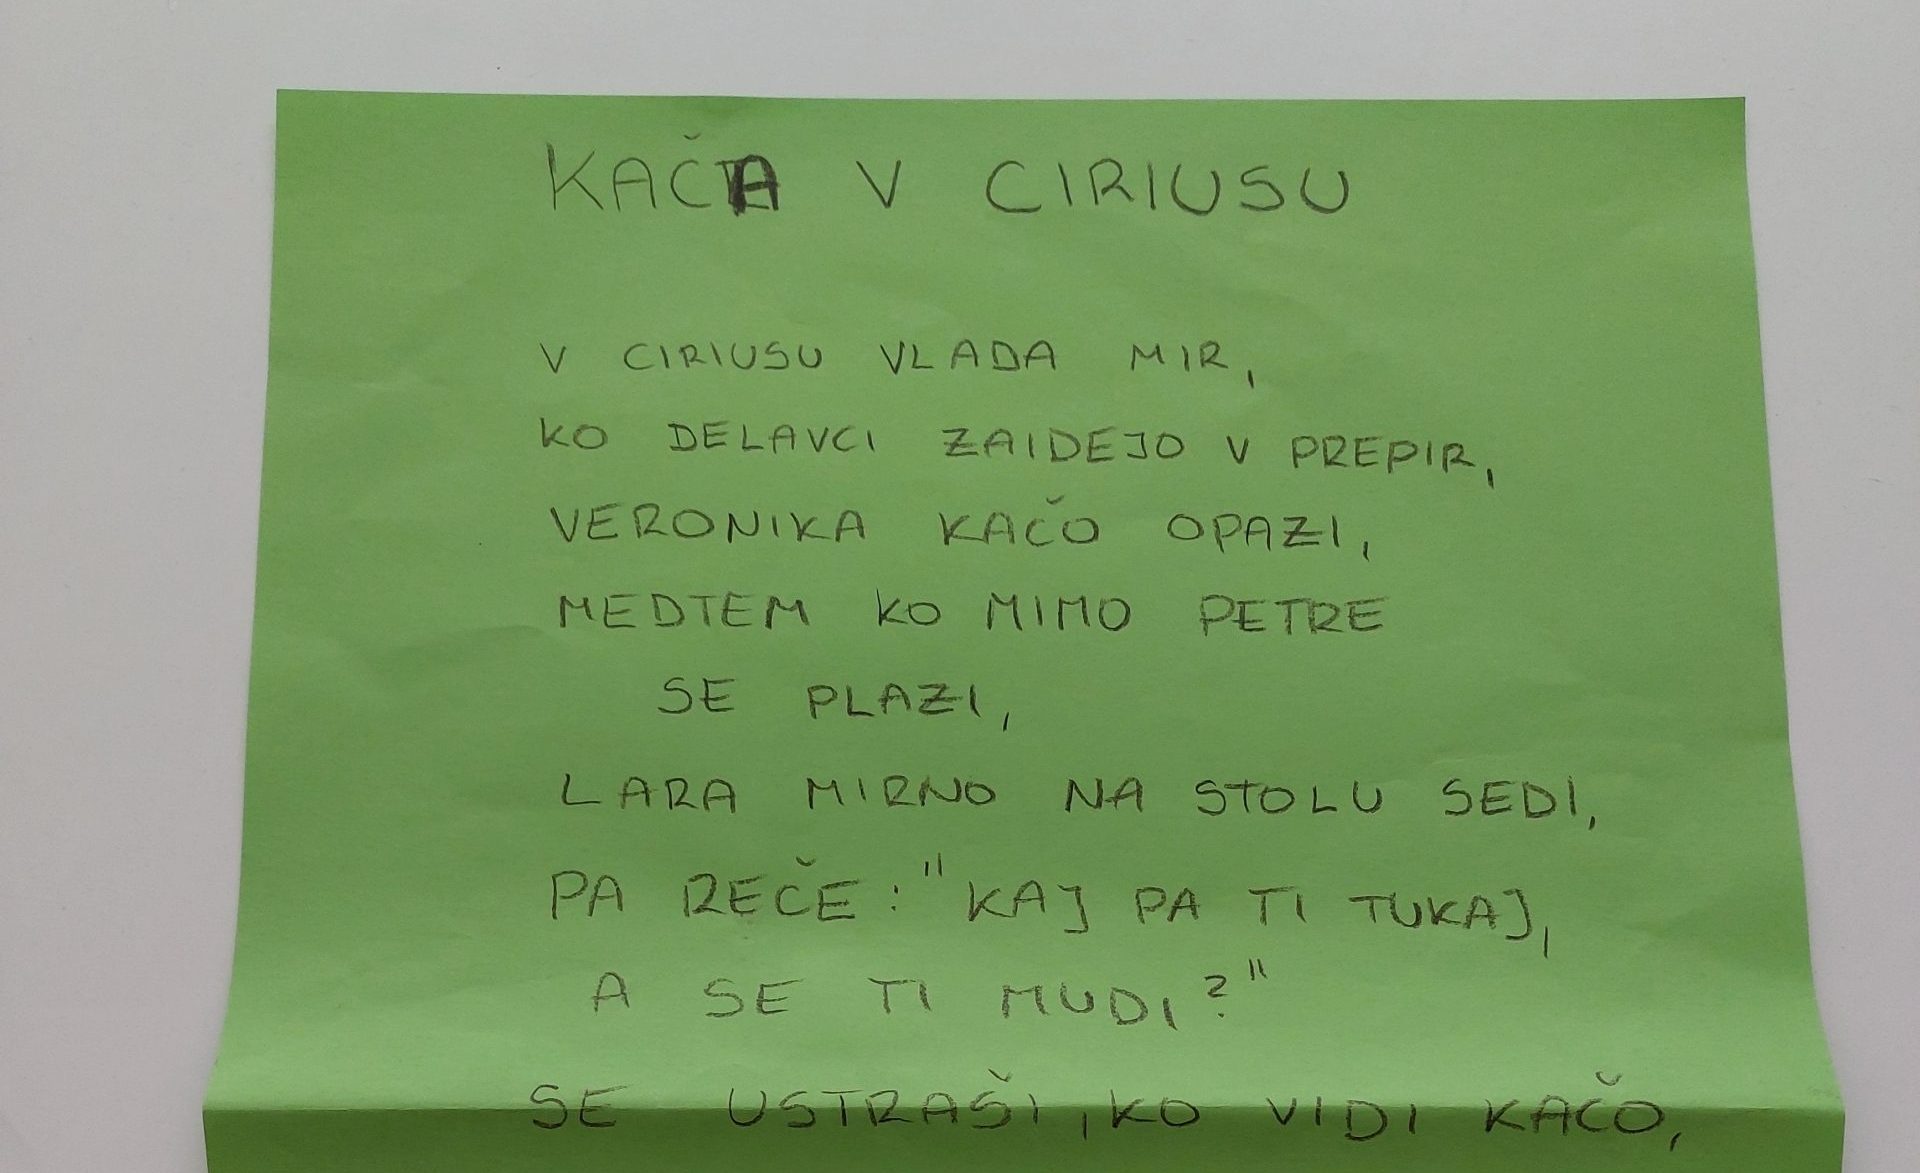 KAČA V CIRIUSU
V CIRIUSU VLADA MIR,
KO DELAVCI ZAIDEJO V PREPIR,
VERONIKA KAČO OPAZI,
MEDTEM KO MIMO PETRE
SE PLAZI,
LARA MIRNO NA STOLU SEDI,
PA REČE: "KAJ PA TI TUKAJ,
A SE TI MUDI?"
SE USTRAŠI, KO VIDI KAČO,